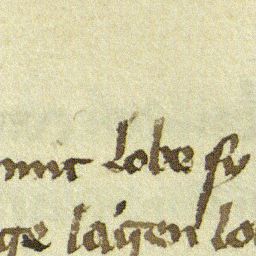 mit lobe sy
ge sagen lo